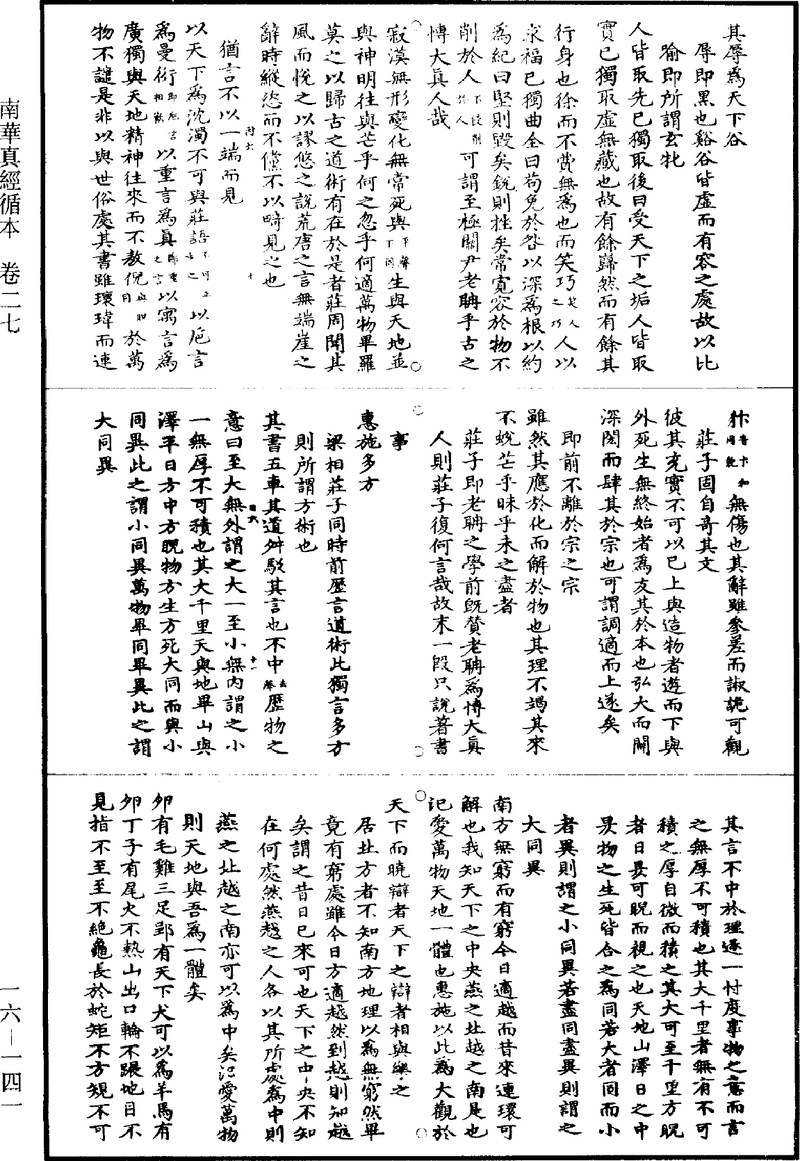 其辱爲天下谷
辱即黑也谿谷皆虛而有容之處故以比
喻即所謂玄牝
人皆取先己獨取後曰受天下之垢人皆取
實己獨取虛無藏也故有餘巋然而有餘其
行身也徐而不費無爲也而笑巧人以
求福己獨曲全曰苟免於咎以深爲根以約
爲紀曰堅則毀矣銳則挫矣常寬容於物不
削於人可謂至極關尹老聃乎古之
博大真人哉
寂漠無形變化無常死與生與天地並
與神明往與芒乎何之忽乎何適萬物畢羅
莫足以歸古之道術有在於是者莊周聞其
風而悅之以謬悠之說荒唐之言無端崖之
辭時縱恣而不儻不以觭見之也
猶言不以一端而見
以天下爲沈濁不可與莊語以巵言
爲曼衍以重言爲真以寓言爲
廣獨與天地精神往來而不敖倪於萬
物不譴是非以與世俗處其書雖瓌瑋而連
犿無傷也其辭雖參差而諔詭可觀
莊子固自奇其文
彼其充實不可以已上與造物者遊而下與
外死生無終始者爲友其於本也弘大而闢
深閎而肆其於宗也可謂調適而上遂矣
即前不離於宗之宗
雖然其應於化而解於物也其理不竭其來
不蛻芒乎昧乎未之盡者
莊子即老聃之學前既贊老聃爲博大真
人則莊子復何言哉故末一段只說著書
事
惠施多方
梁相莊子同時前歷言道術此獨言多方
則所謂方術也
其書五車其道舛駁其言也不中歷物之
意曰至大無外謂之大一至小無內謂之小
一無厚不可積也其大千里天與地卑山與
澤平日方中方睨物方生方死大同而與小
同異此之謂小同異萬物畢同畢異此之謂
大同異
其言不中於理逐一忖度事物之意而言
之無厚不可積也其大千里者無有不可
積之厚自微而積之其大可至千里方睨
者日昃可睨而視之也天地山澤日之中
昃物之生死皆合之爲同若大者同而小
者異則謂之小同異若盡同盡異則謂之
大同異
南方無窮而有窮今日適越而昔來連環可
解也我知天下之中央燕之北越之南是也
氾愛萬物天地一體也惠施以此爲大觀於
天下而曉辯者天下之辯者相與樂之
居北方者不知南方地理以爲無窮然畢
竟有窮處雖今日方適越然到越則知越
矣謂之昔日已來可也天下之中央不知
在何處然燕越之人各以其所處爲中則
燕之北越之南亦可以爲中矣氾愛萬物
則天地與吾爲一體矣
卵有毛雞三足郢有天下犬可以爲羊馬有
卵丁子有尾火不熱山出口輪不蹍地目不
見指不至至不絶龜長於蛇矩不方規不可
南華真經循本　卷二七
一六—一四一